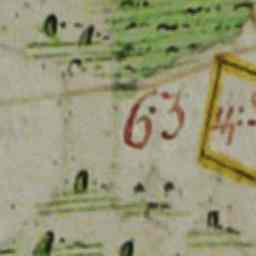 63
4: